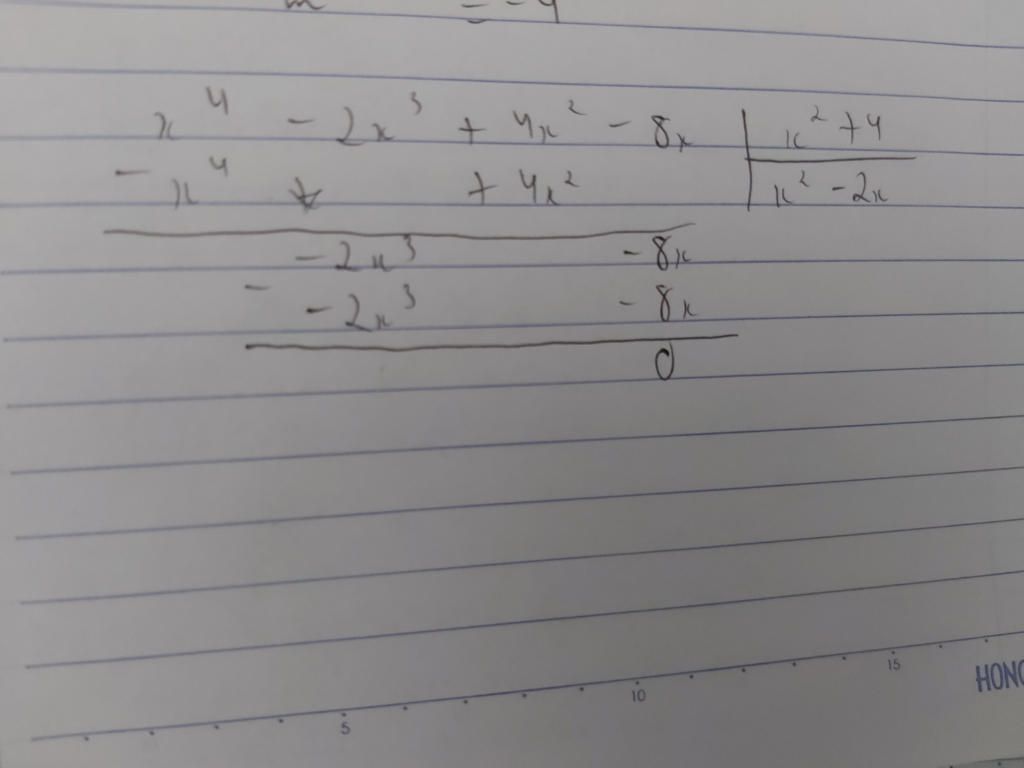 = -4
x⁴ - 2x³ + 4x² - 8x | x² + 4
- x⁴ + 4x² | x² - 2x
- 2x³ - 8x
- - 2x³ - 8x
0
5 10 15
HONG